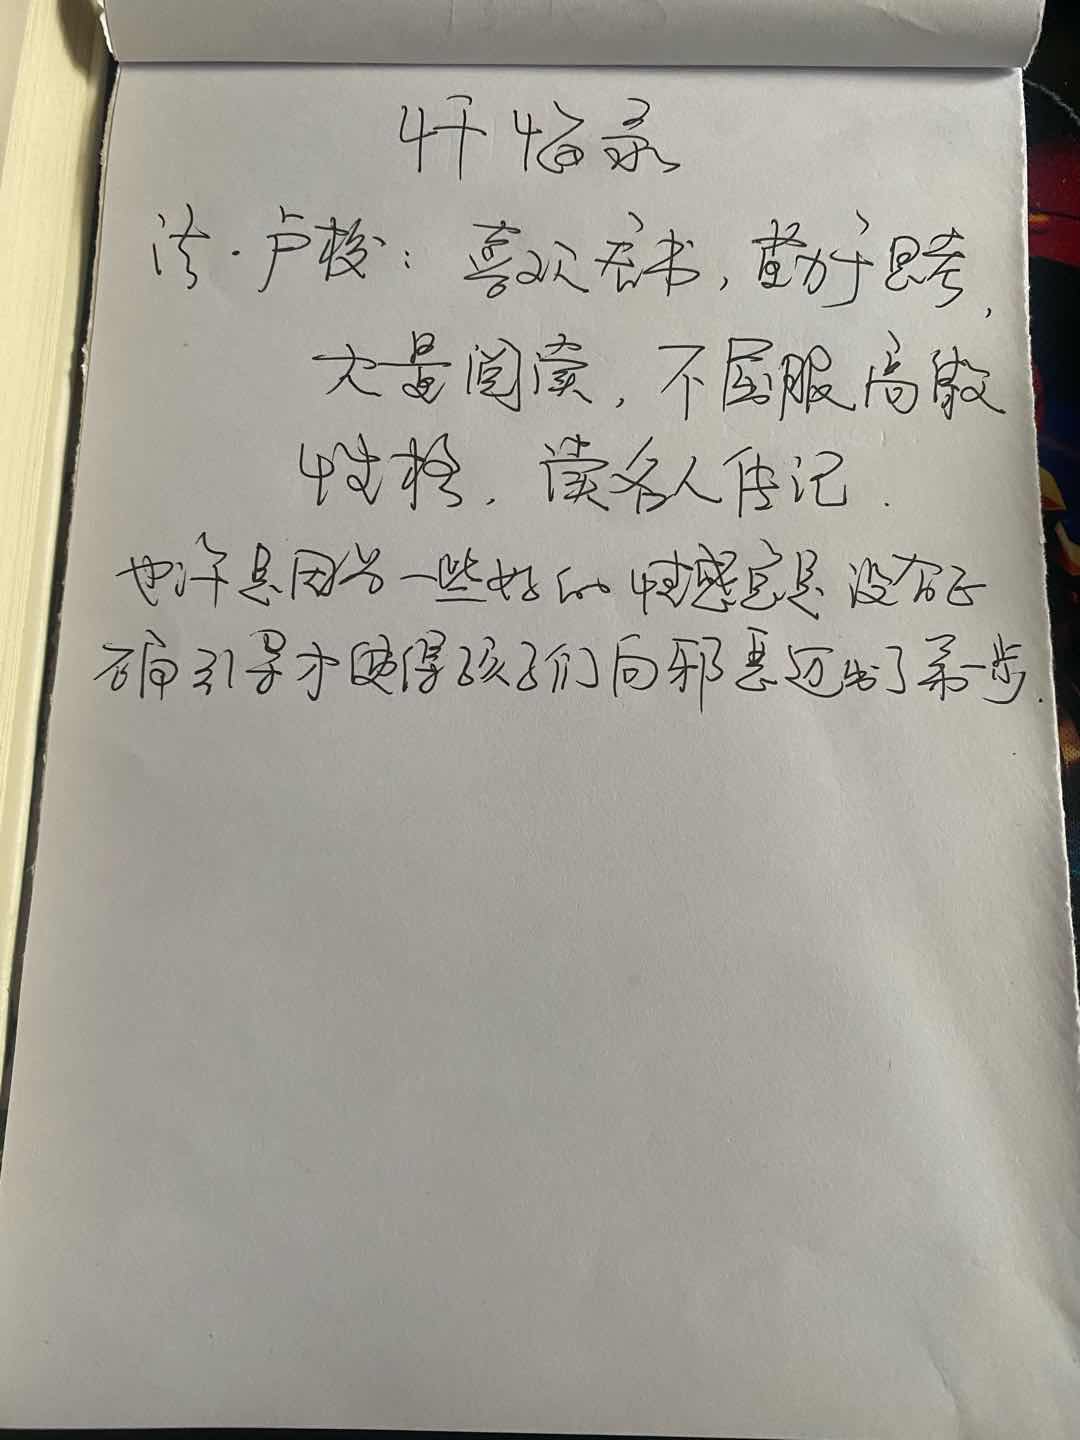 忏悔录
法·卢梭：喜欢看书，勤于思考，
大量阅读，不屈服高傲
性格，读名人传记．
也许是因为一些好的情感完是没有正
确引导才使得孩子们向邪恶迈出了第一步．